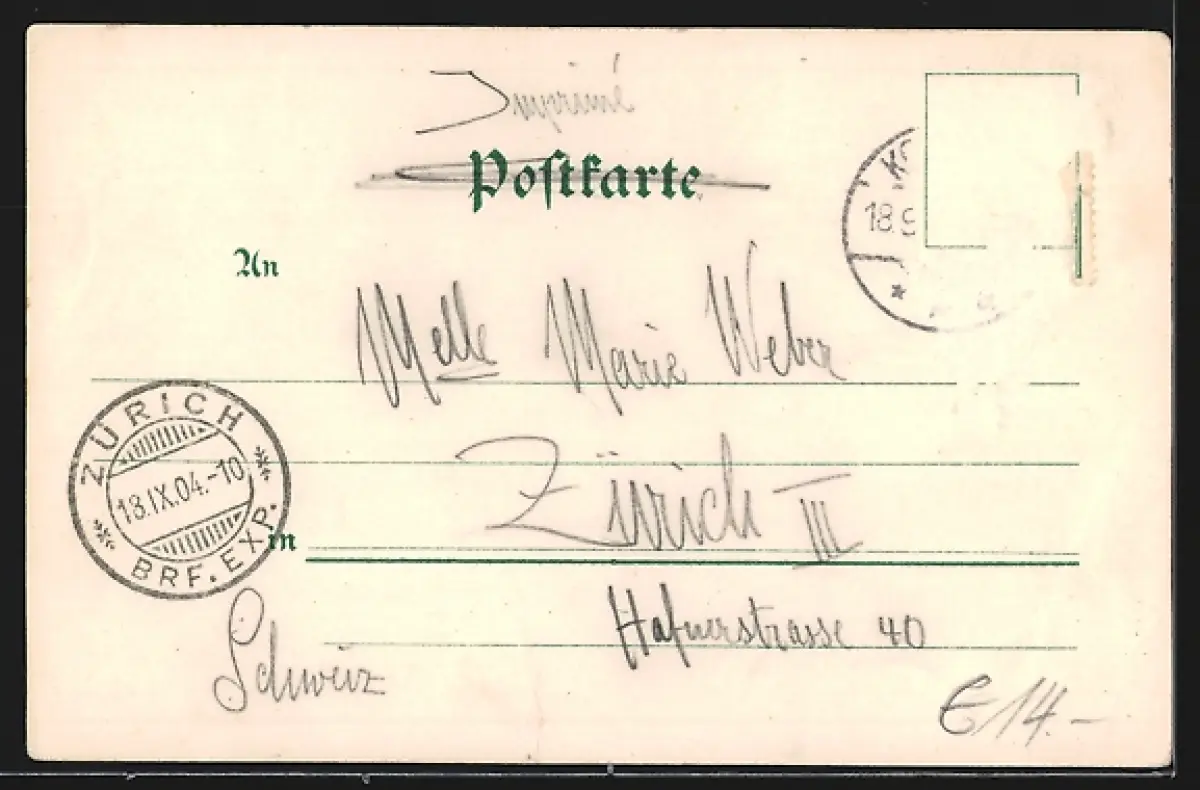 Imprimé
Postkarte
An
18.9
Melle Marie Weber
ZÜRICH
18.IX.04.-10
BRF. EXP.
Zürich III
in
Hafnerstrasse 40
Schweiz
€ 14.-